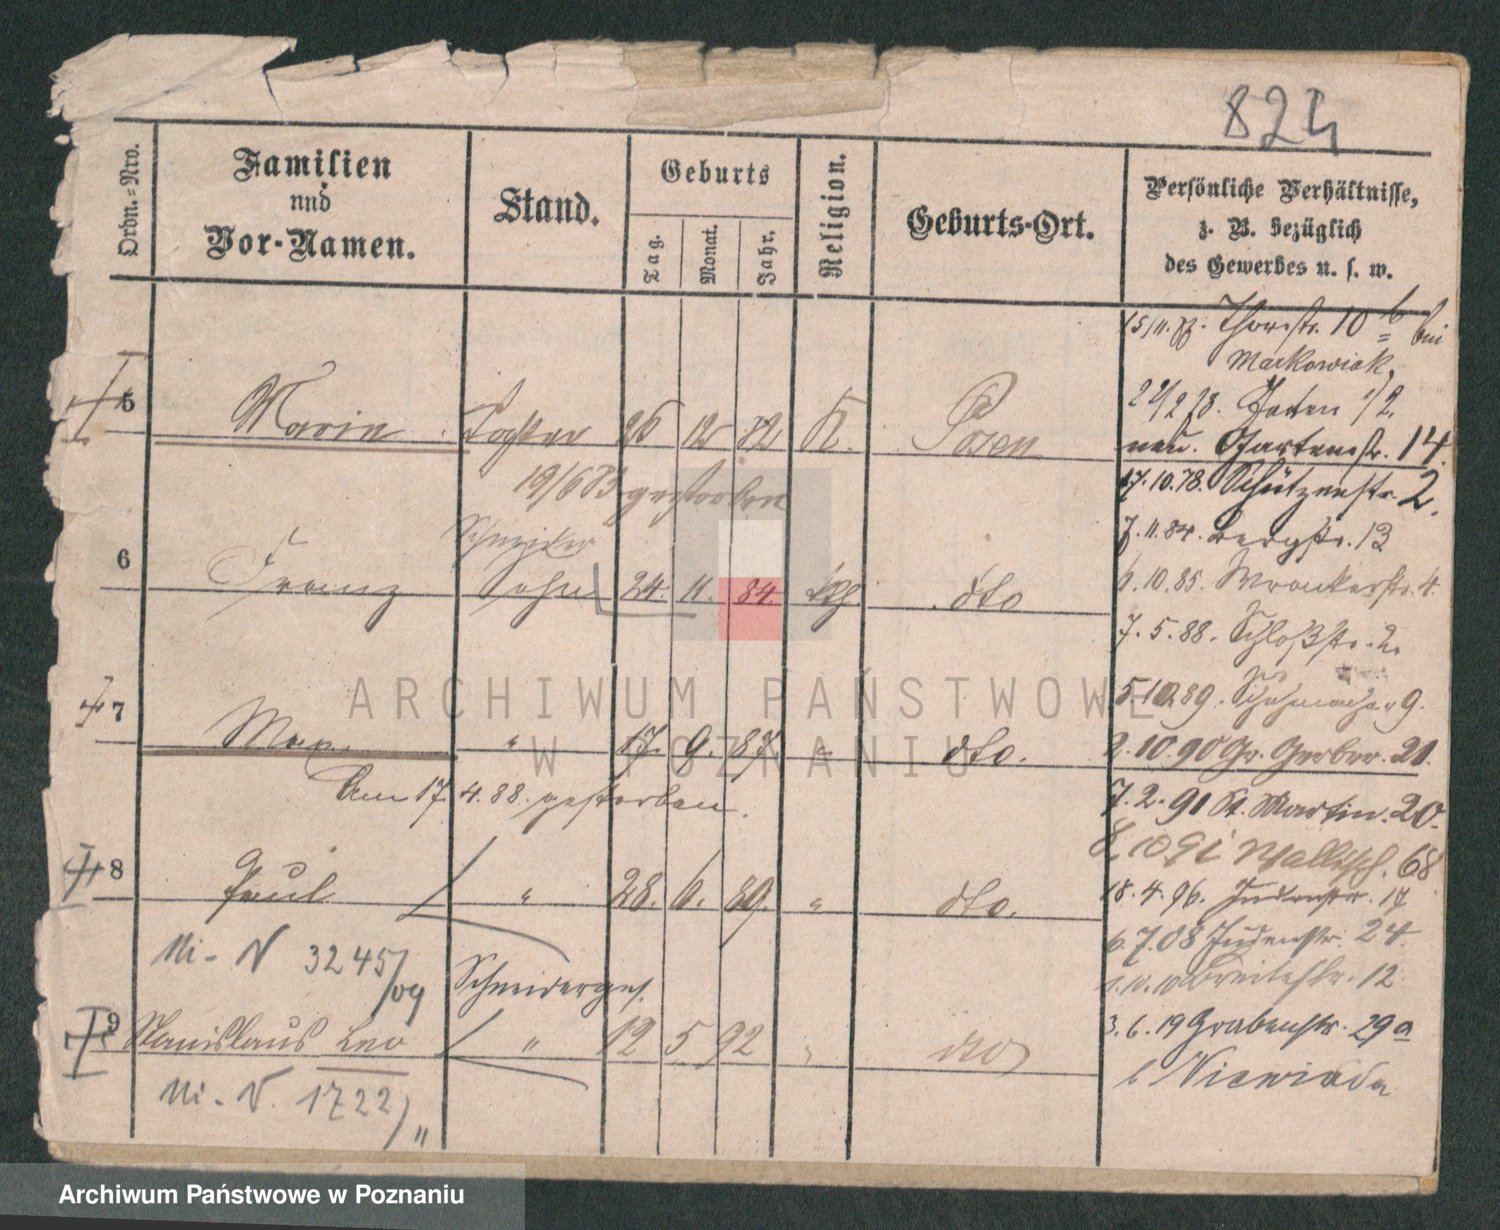 824
Ordn.=Nro.
Familien
und
Vor-Namen.
Stand.
Geburts
Tag.
Monat.
Jahr.
Religion.
Geburts-Ort.
Persönliche Verhältnisse,
z. B. bezüglich
des Gewerbes u. s. w.
Thorstr. 10 b bei
Markowiak,
5 Marie Tochter 26 12 72 K. Posen
22/2 78. Garten 1/2.
neu. Gartenstr. 14.
19/6 73 gestorben
17.10.78. Schützenstr 2.
Schneider
7.11.84. Bergstr. 13
6 Franz Sohn 24. 11. 84. kth dto
6.10.85. Wronkerstr. 4.
7.5.88. Schloßstr. 2.
5.10.89. Schuhmacher 9.
7 Max. " 17. 9. 87. " dto.
2.10.90 Gr. Gerber. 21.
Am 17. 4. 88. gestorben.
7.2.91 St. Martin. 20.
8 Paul " 28. 6. 89. " dto.
8.10 91 Wallisch. 68
18.4.96. Judenstr. 17
Mi-N 3245/09
6.7.08 Judenstr. 24.
Schneiderges.
1.10.10 Breitestr. 12
9 Stanislaus Leo " 12 5 92 dto
3.6.19 Grabenstr. 29a
b Niewiada
Mi-N. 1722/11
ARCHIWUM PAŃSTWOWE
W POZNANIU
Archiwum Państwowe w Poznaniu